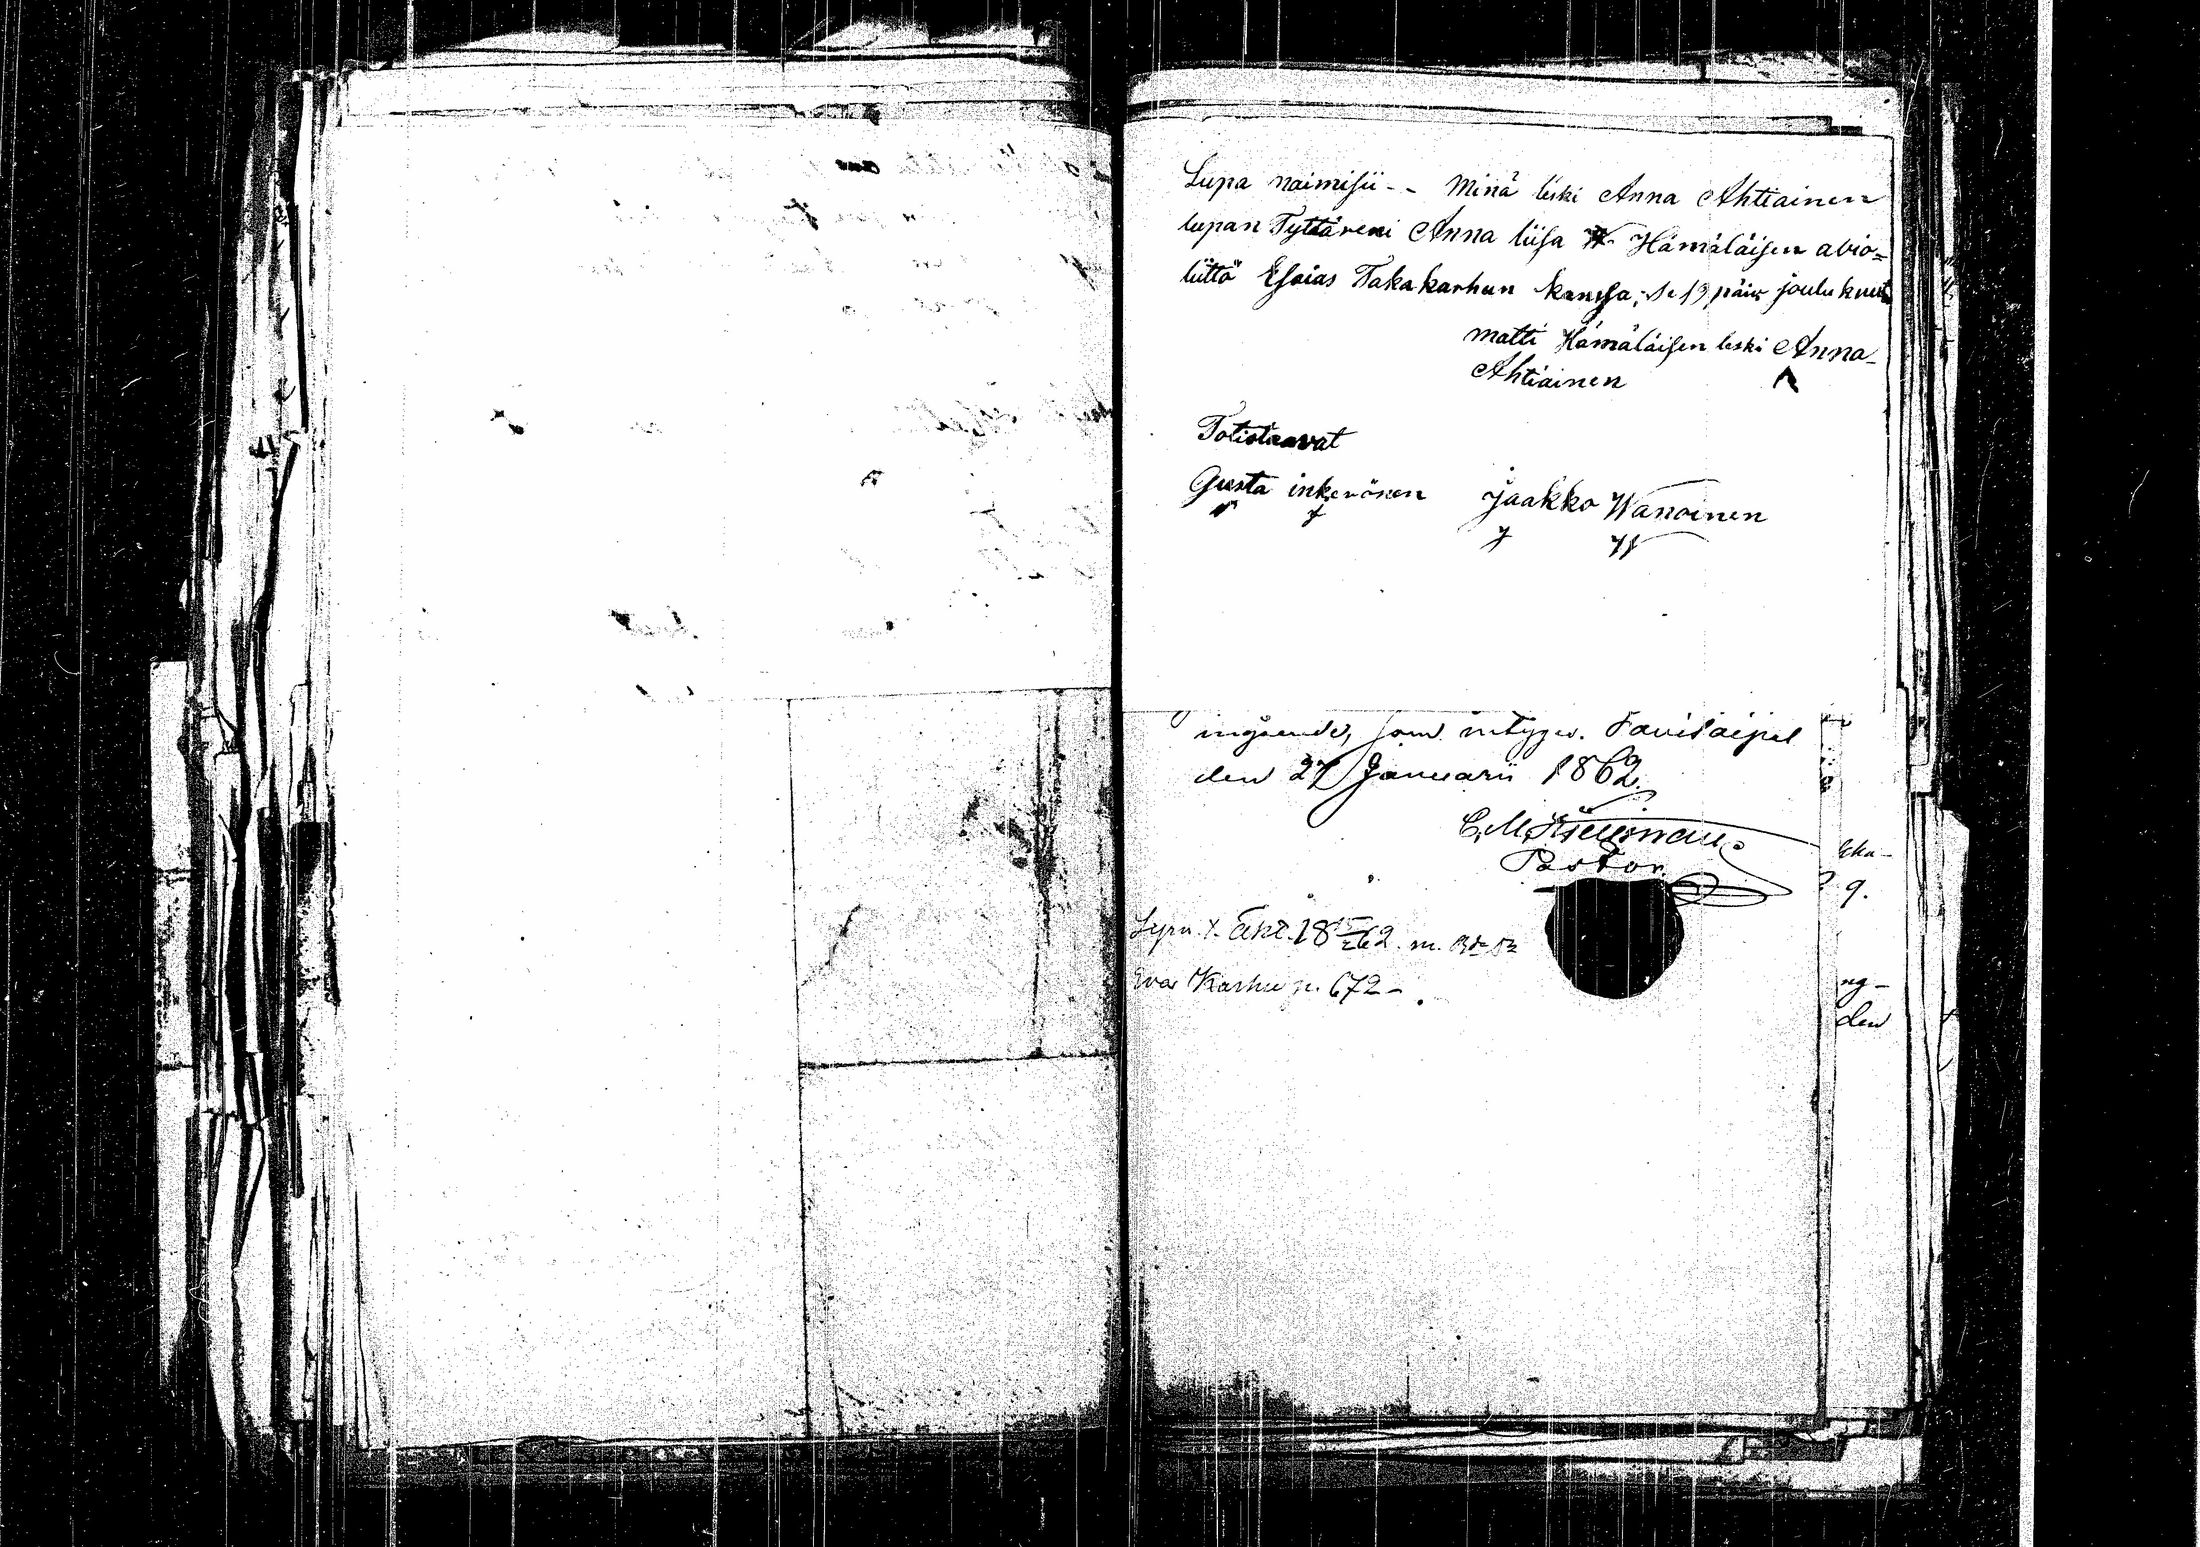 Lupa naimisii-- Minä leski Anna Ahtiainen
lupan Tyttäreni Anna liisa H. Hämäläisen avio=
liitto Esaias Takakarhun kanssa, se 19 päiv joulukuut
matti Hämäläisen leski Anna
Ahtiainen A
Totistaavat
Gusta inkerönen Jaakko Wanoinen
ingående, som intygas. Savitaipal
den 27 Januarii 1862.
C. M.
Pastor
Lyst. X. 18 62. m.
Eva Karhu p. 672 -
9.
ng-
den